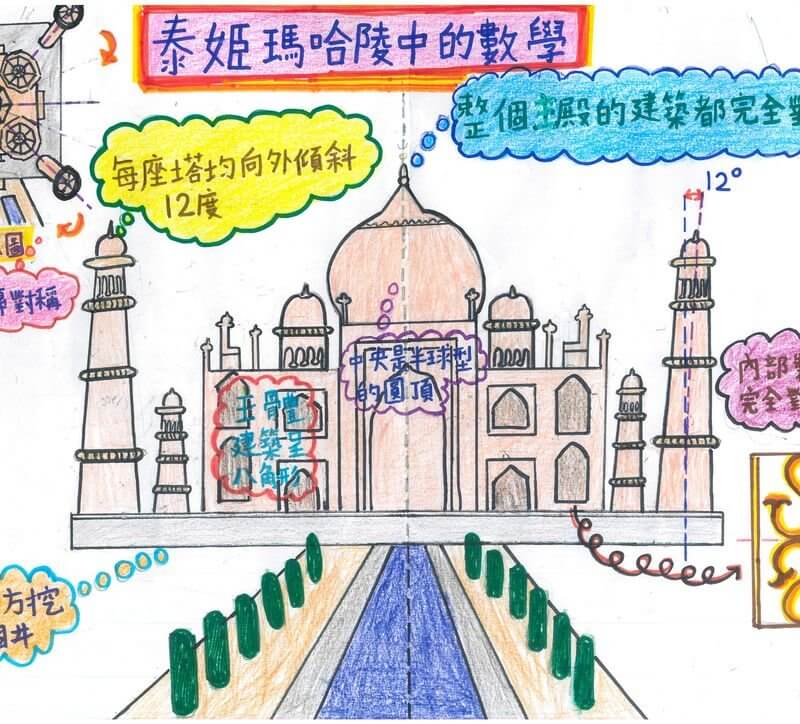 泰姬瑪哈陵中的數學
整個主殿的建築都完全
每座塔均向外傾斜
12度
12°
圖
對稱
中央是半球型
的圓頂
主體
建築呈
八角形
內部
完全
方挖
井